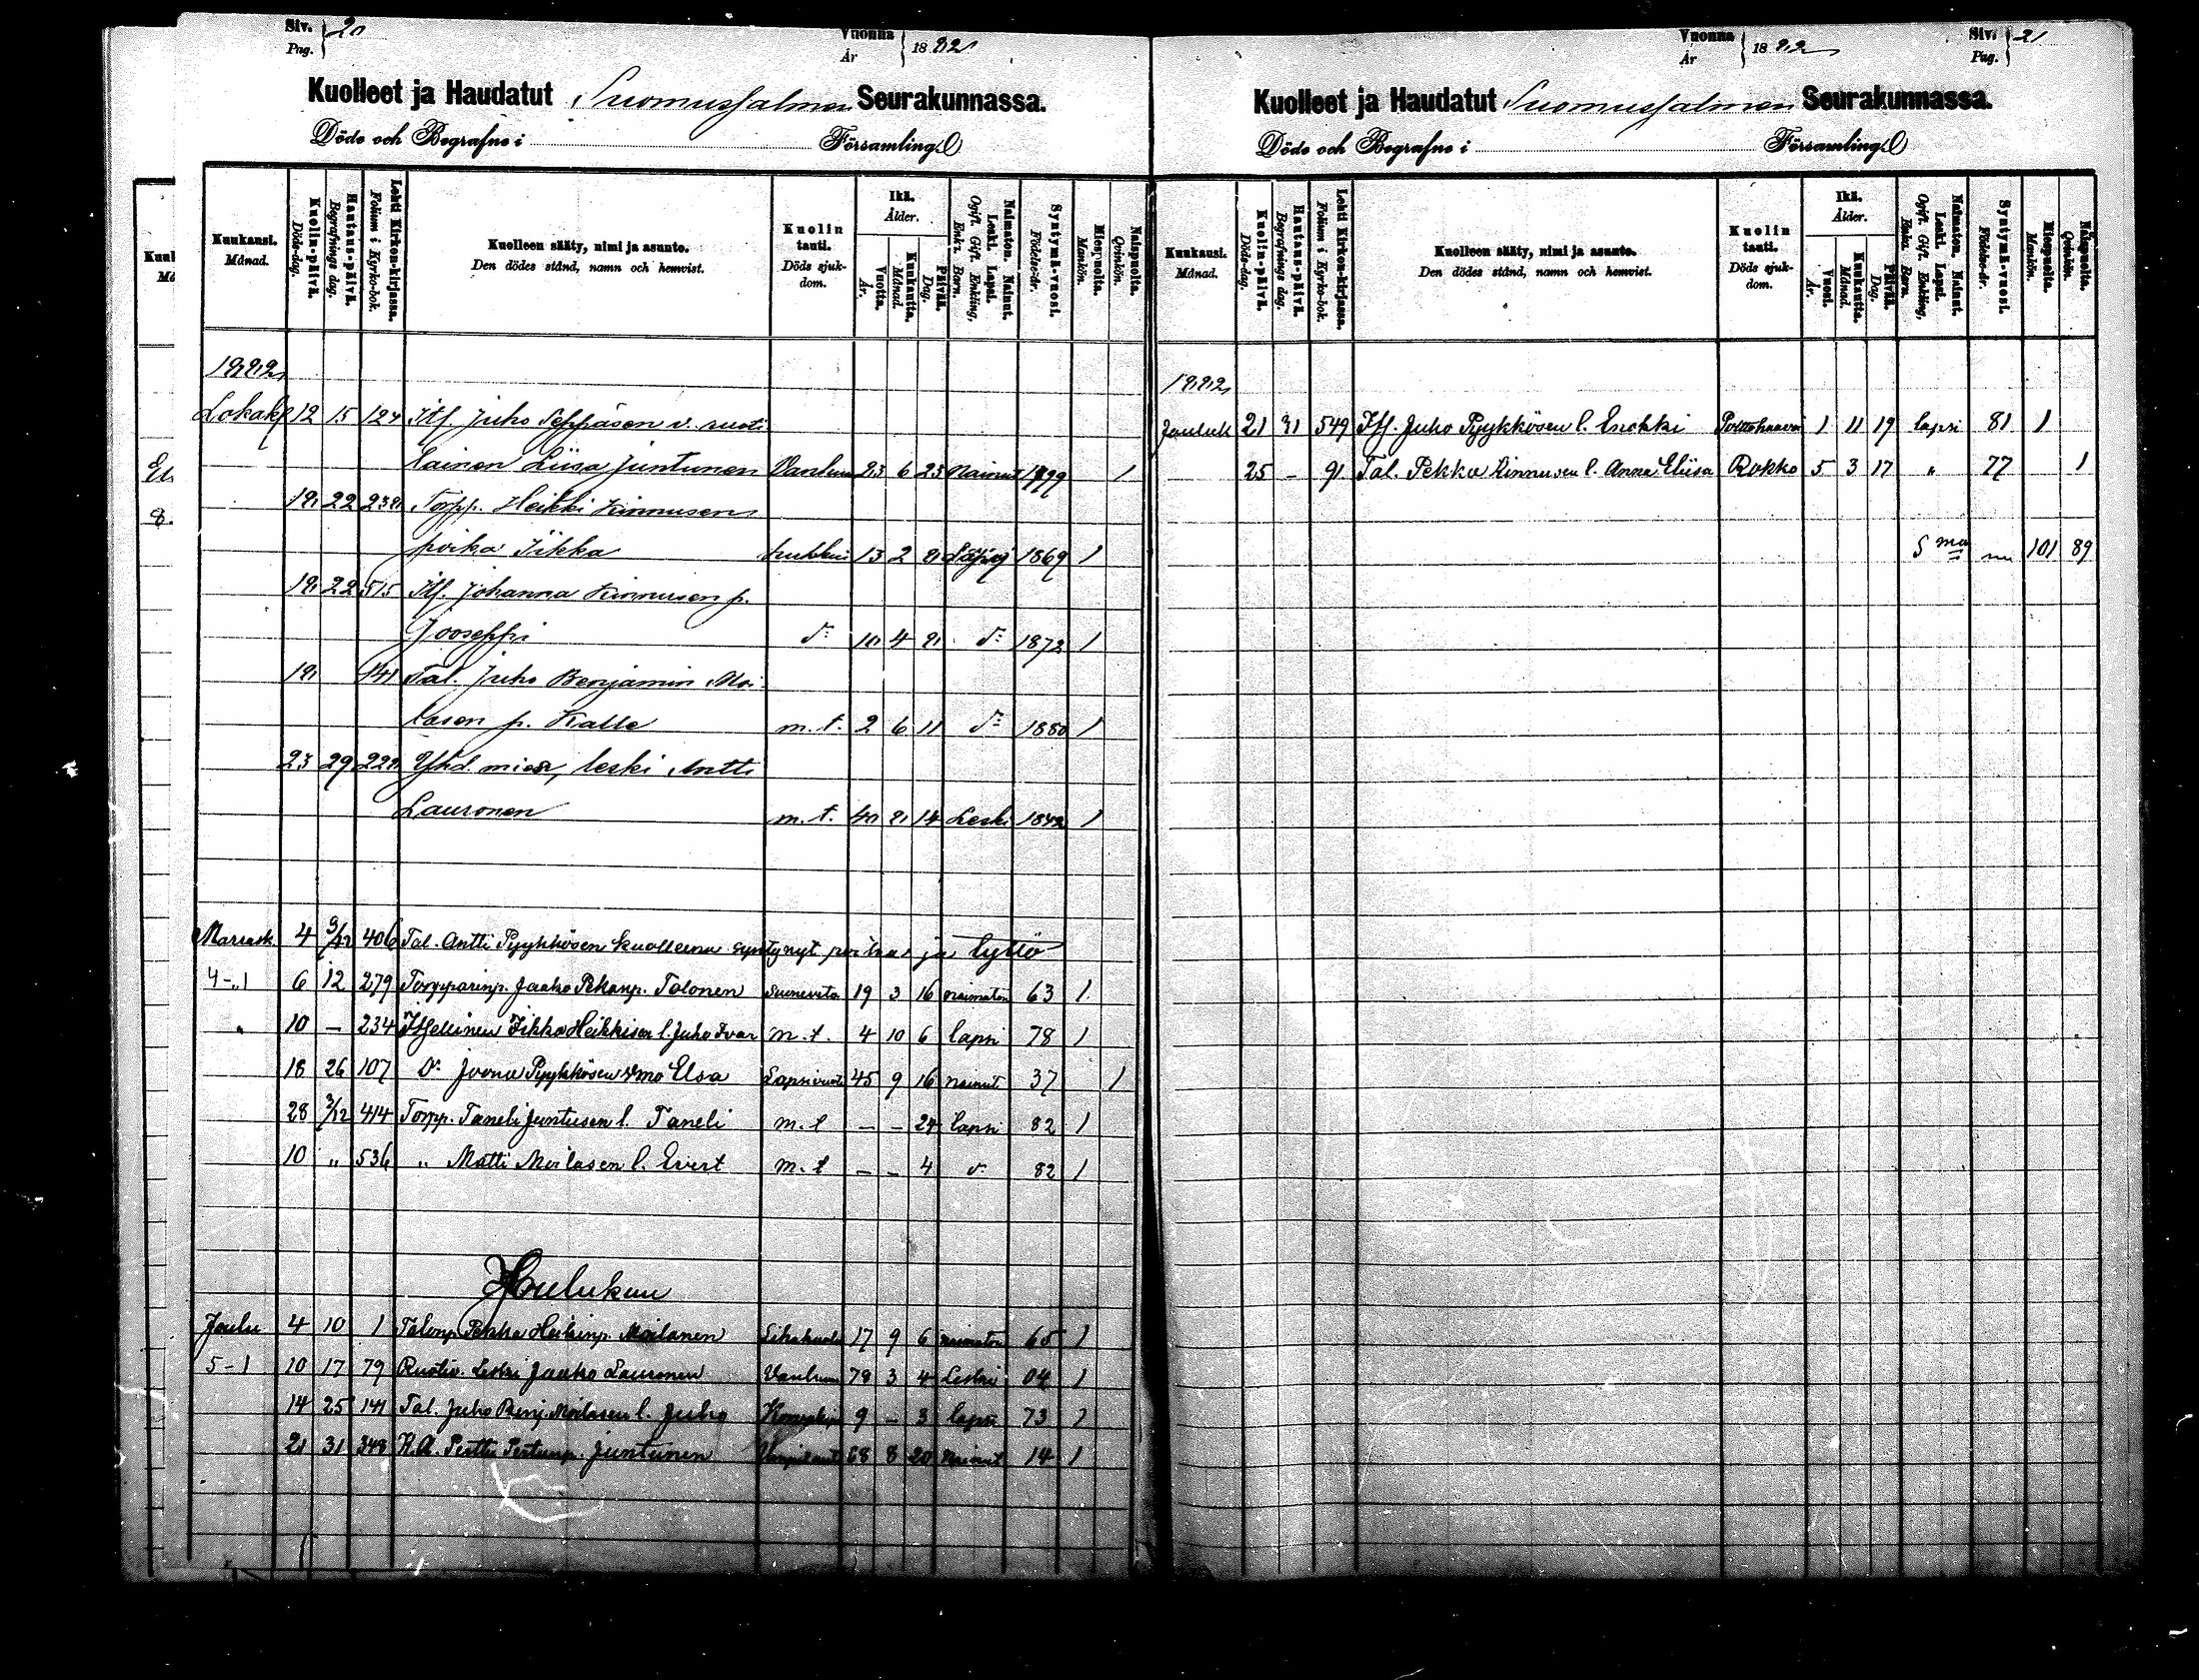 Siv. 20
Pag.
Vuonna 1882
År
Kuolleet ja Haudatut Suomussalmen Seurakunnassa.
Döde och Begrafne i Församling
Kuukausi. Månad.
Kuolin-päivä. Döds-dag.
Hautaus-päivä. Begrafnings dag.
Lehti Kirkon-kirjassa. Folium i Kyrko-bok.
Kuolleen sääty, nimi ja asunto. Den dödes stånd, namn och hemvist.
Kuolin tauti. Döds sjukdom.
Ikä. Ålder.
Vuotta. År.
Kuukautta. Månad.
Päivää. Dag.
Naimaton. Nainut. Leski. Lapsi. Ogift. Gift. Enkling, Enka. Barn.
Syntymä-vuosi. Födelse-år.
Miespuolta. Mankön.
Naispuolta. Qvinkön.
1882
Lokak 12 15 124 Itf. Juho Seppäsen v. ruoti
lainen Liisa Juntunen 23 6 23 Nainut 1
18 22 238 Torpp. Heikki Kinnusen
poika Iikka 13 2 8 1869 1
18 22 515 Itf. Johanna Kinnusen p.
Jooseppi d:o 10 4 8 d:o 1872 1
18 141 Tal. Juho Benjamin Moi-
lasen p. Kalle m.t. 2 6 11 d:o 1880 1
23 29 228 Yhd. mies, leski Antti
Lauronen m.t. 40 8 14 Leski 1842 1
Marrask. 4 3/12 406 Tal. Antti Pyykkösen kuolleena syntynyt poika ja tyttö
4-1 6 12 279 Torpparinp. Jaako Pekanp. Tolonen 19 3 16 naimaton 63 1
" 10 – 234 Itsellinen Iikka Heikkisen l. Juho Ivar m.t. 4 10 6 lapsi 78 1
18 26 107 D:o Joona Pyykkösen vmo Elsa Lapsivuode 45 9 16 nainut 37 1
28 3/12 414 Torpp. Taneli Juntusen l. Taneli m.t – – 24 lapsi 82 1
10 " 536 " Matti Moilasen l. Evert m.t – – 4 d:o 82 1
Joulukuu
Joulu 4 10 1 Talonp. Pekka Heikinp. Moilanen 17 9 6 naimaton 65 1
5-1 10 17 79 Ruotiv. Leski Jaako Lauronen Vanhuus 78 3 4 Leski 04 1
14 25 141 Tal. Juho Benj. Moilasen l. Juho 9 – 3 lapsi 73 1
21 31 348 K.A. Perttu Pertunp. Juntunen 68 8 20 nainut 14 1
Vuonna 1882
År
Siv. 21
Pag.
Kuolleet ja Haudatut Suomussalmen Seurakunnassa.
Döde och Begrafne i Församling
Kuukausi. Månad.
Kuolin-päivä. Döds-dag.
Hautaus-päivä. Begrafnings dag.
Lehti Kirkon-kirjassa. Folium i Kyrko-bok.
Kuolleen sääty, nimi ja asunto. Den dödes stånd, namn och hemvist.
Kuolin tauti. Döds sjukdom.
Ikä. Ålder.
Vuosi. År.
Kuukautta. Månad.
Päivää. Dag.
Naimaton. Nainut. Leski. Lapsi. Ogift. Gift. Enkling, Enka. Barn.
Syntymä-vuosi. Födelse-år.
Miespuolta. Mankön.
Naispuolta. Qvinkön.
1882
Jouluk 21 31 549 Itf. Juho Pyykkösen l. Enokki Polttohaava 1 11 19 lapsi 81 1
25 – 91 Tal. Pekka Kinnusen l. Anna Eliisa Rokko 5 3 17 " 77 1
Sma 101 89